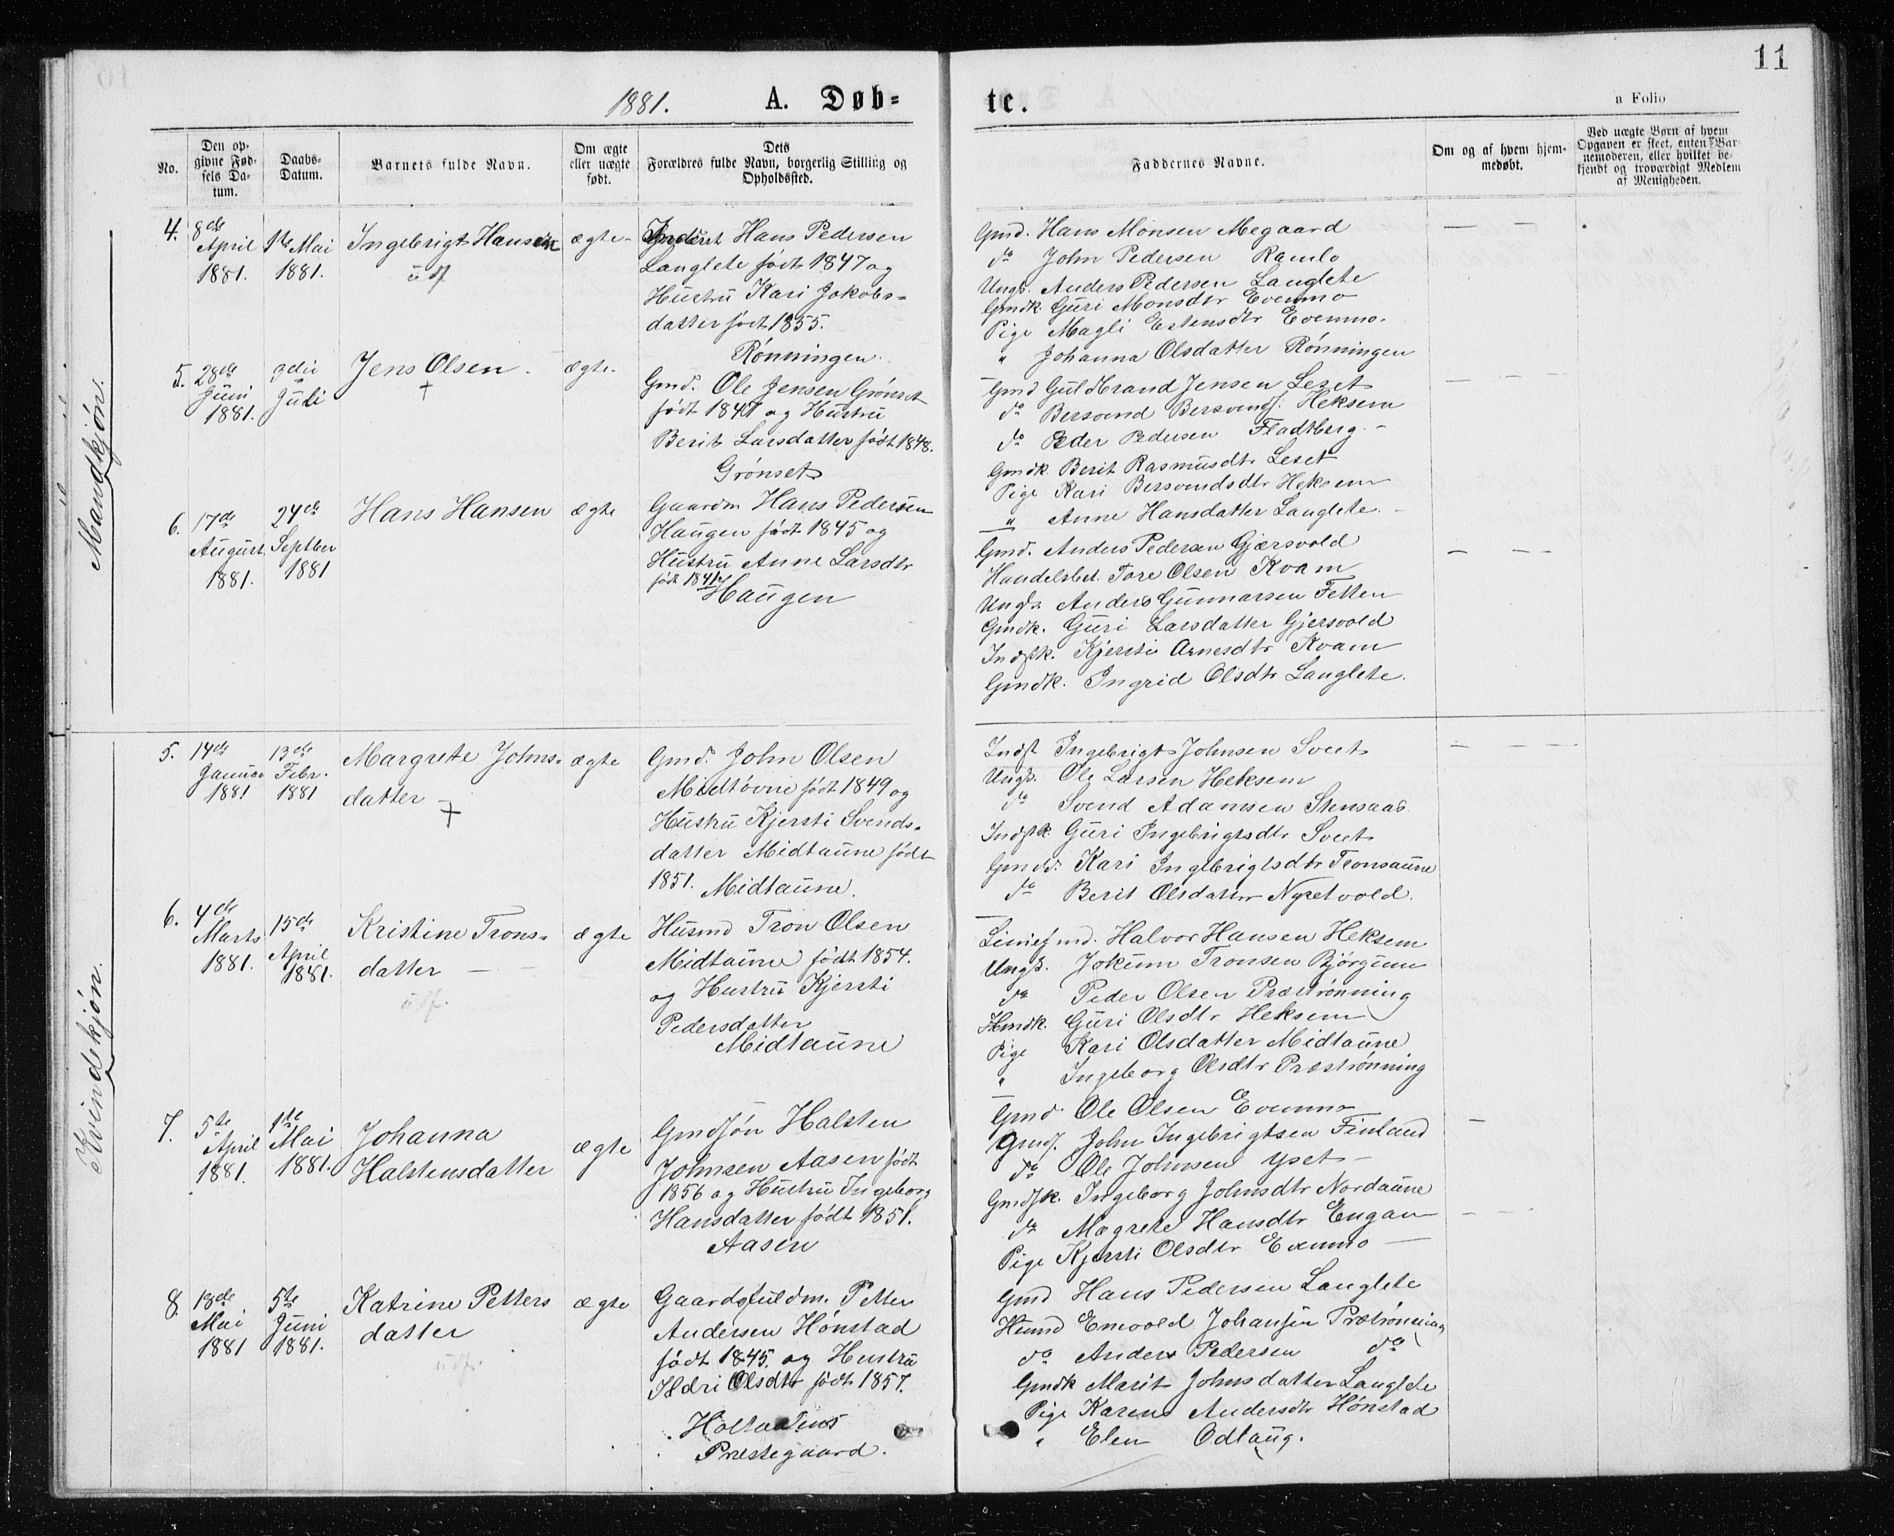 11
1881. A. Døb=te.
a Folio
No.
Den op-
givne Fød-
sels Da-
tum.
Daabs-
Datum.
Barnets fulde Navn.
Om ægte
eller uægte
født.
Dets
Forældres fulde Navn, borgerlig Stilling og
Opholdssted.
Faddernes Navne.
Om og af hvem hjem-
medøbt.
Ved uægte Børn af hvem
Opgaven er skeet, enten Bar-
nemoderen, eller hvilket be-
kjendt og troværdigt Medlem
af Menigheden.
Mandkjøn.
4.
8de
April
1881.
1ste Mai
1881.
Ingebrigt Hansen
ægte
Inderst Hans Pedersen
Langlete født 1847 og
Hustru Kari Jakobs=
datter født 1855.
Rønningen.
Gmd. Hans Monsen Megaard
do John Pedersen Ramlo
Ungk. Anders Pedersen Langlete
Gmdk. Guri Monsdtr Evenmo
Pige Magli Estensdtr Evenmo.
" Johanna Olsdatter Rønningen
5.
28de
Juni
1881.
3die
Juli
Jens Olsen
+
ægte.
Gmd. Ole Jensen Grønset
født 1841 og Hustru
Berit Larsdatter født 1848.
Grønset
Gmd Guldbrand Jensen Leset
do Bersvend Bersvends. Heksem
do Peder Pedersen Fladtberg.
Gmdk Berit Rasmusdtr Leset
Pige Kari Bersvendsdtr Heksem
" Anne Hansdatter Langlete.
6.
17de
August
1881.
24de
Septber
1881
Hans Hansen
ægte
Gaardm. Hans Pedersen
Haugen født 1845 og
Hustru Anne Larsdtr
født 1841
Haugen
Gmd. Anders Pedersen Gjærsvold
Handelsbet. Tore Olsen Kvam
Ungk. Anders Gunnarsen Fetten
Gmdk. Guri Larsdatter Gjersvold
Indstk. Kjersti Arnesdtr Kvam
Gmdk. Ingrid Olsdtr Langlete.
Kvindekjøn.
5.
14de
Januar
1881
13de
Febr.
1881
Margrete Johns=
datter
+
ægte
Gmd. John Olsen
Midtøvne født 1849 og
Hustru Kjersti Svends=
datter Midtaune født
1851. Midtaune.
Indst Ingebrigt Johnsen Svet
Ungk. Ole Larsen Heksem
do Svend Adamsen Stensaas
Indstk Guri Ingebrigtsdtr Svet
Gmdd. Kari Ingebrigtsdtr Tronsaune
do Berit Olsdatter Nyretvold.
6.
4de
Marts
1881.
15de
April
1881.
Kristine Trons=
datter
ægte
Husmd Tron Olsen
Midtaune født 1854.
og Hustru Kjersti
Pedersdatter
Midtaune
Halvor Hansen Heksem
Ungk. Jokum Tronsen Bjørgum
do Peder Olsen Præstrønning
Hmdk. Guri Olsdtr Heksem
Pige Kari Olsdatter Midtaune
" Ingeborg Olsdtr Præstrønning
7.
5te
April
1881.
1ste
Mai
1881.
Johanna
Halstensdatter
ægte
Gmdsøn Halsten
Johnsen Aasen født
1856 og Hustru Ingeborg
Hansdatter født 1851.
Aasen
Gmd. Ole Olsen Evenmo
Gmds. John Ingebrigtsen Finland
do Ole Johnsen Yset
Gmdsk. Ingeborg Johnsdtr Nordaune
do Magrete Hansdtr Engan
Pige Kjersti Olsdtr Evenmo
8.
13de
Mai
1881
5te
Juni
1881.
Katrine Petters
datter
ægte
Gaardsfuldm. Petter
Andersen Hønstad
født 1845. og Hustru
Ildri Olsdtr født 1857.
Holtaalens
Præstegaard.
Gmd Hans Pedersen Langlete
Husmd Enevold Johansen Præstrønning
do Anders Pedersen do
Gmdk Marit Johnsdatter Langlete
Pige Karen Andersdtr Hønstad
" Elen Odlaug.